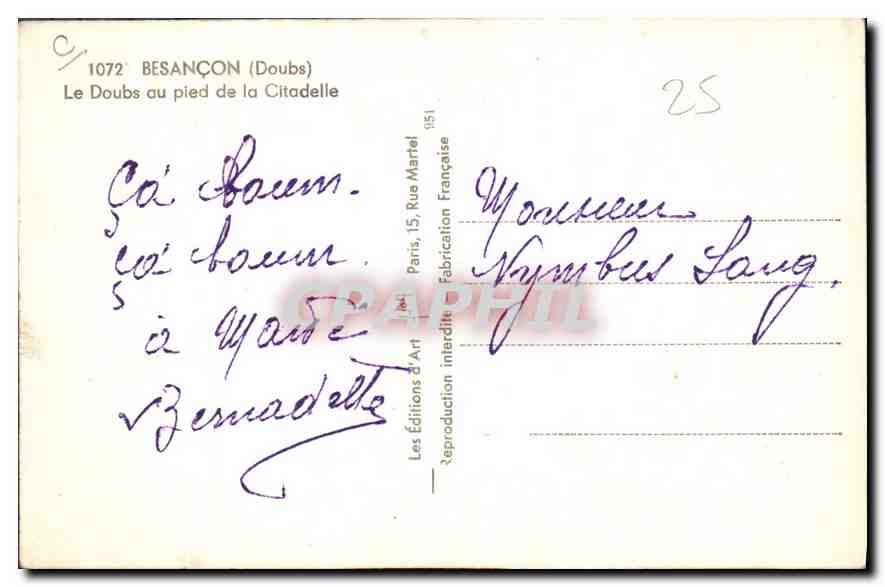 C/
1072 BESANÇON (Doubs)
Le Doubs au pied de la Citadelle
25
Ça boum.
ça boum.
à Mardi
Bernadette
Les Éditions d'Art Paris, 15, Rue Martel
Reproduction interdite Fabrication Française
951
Monsieur
Nymbus Lang.
CPAPHIL